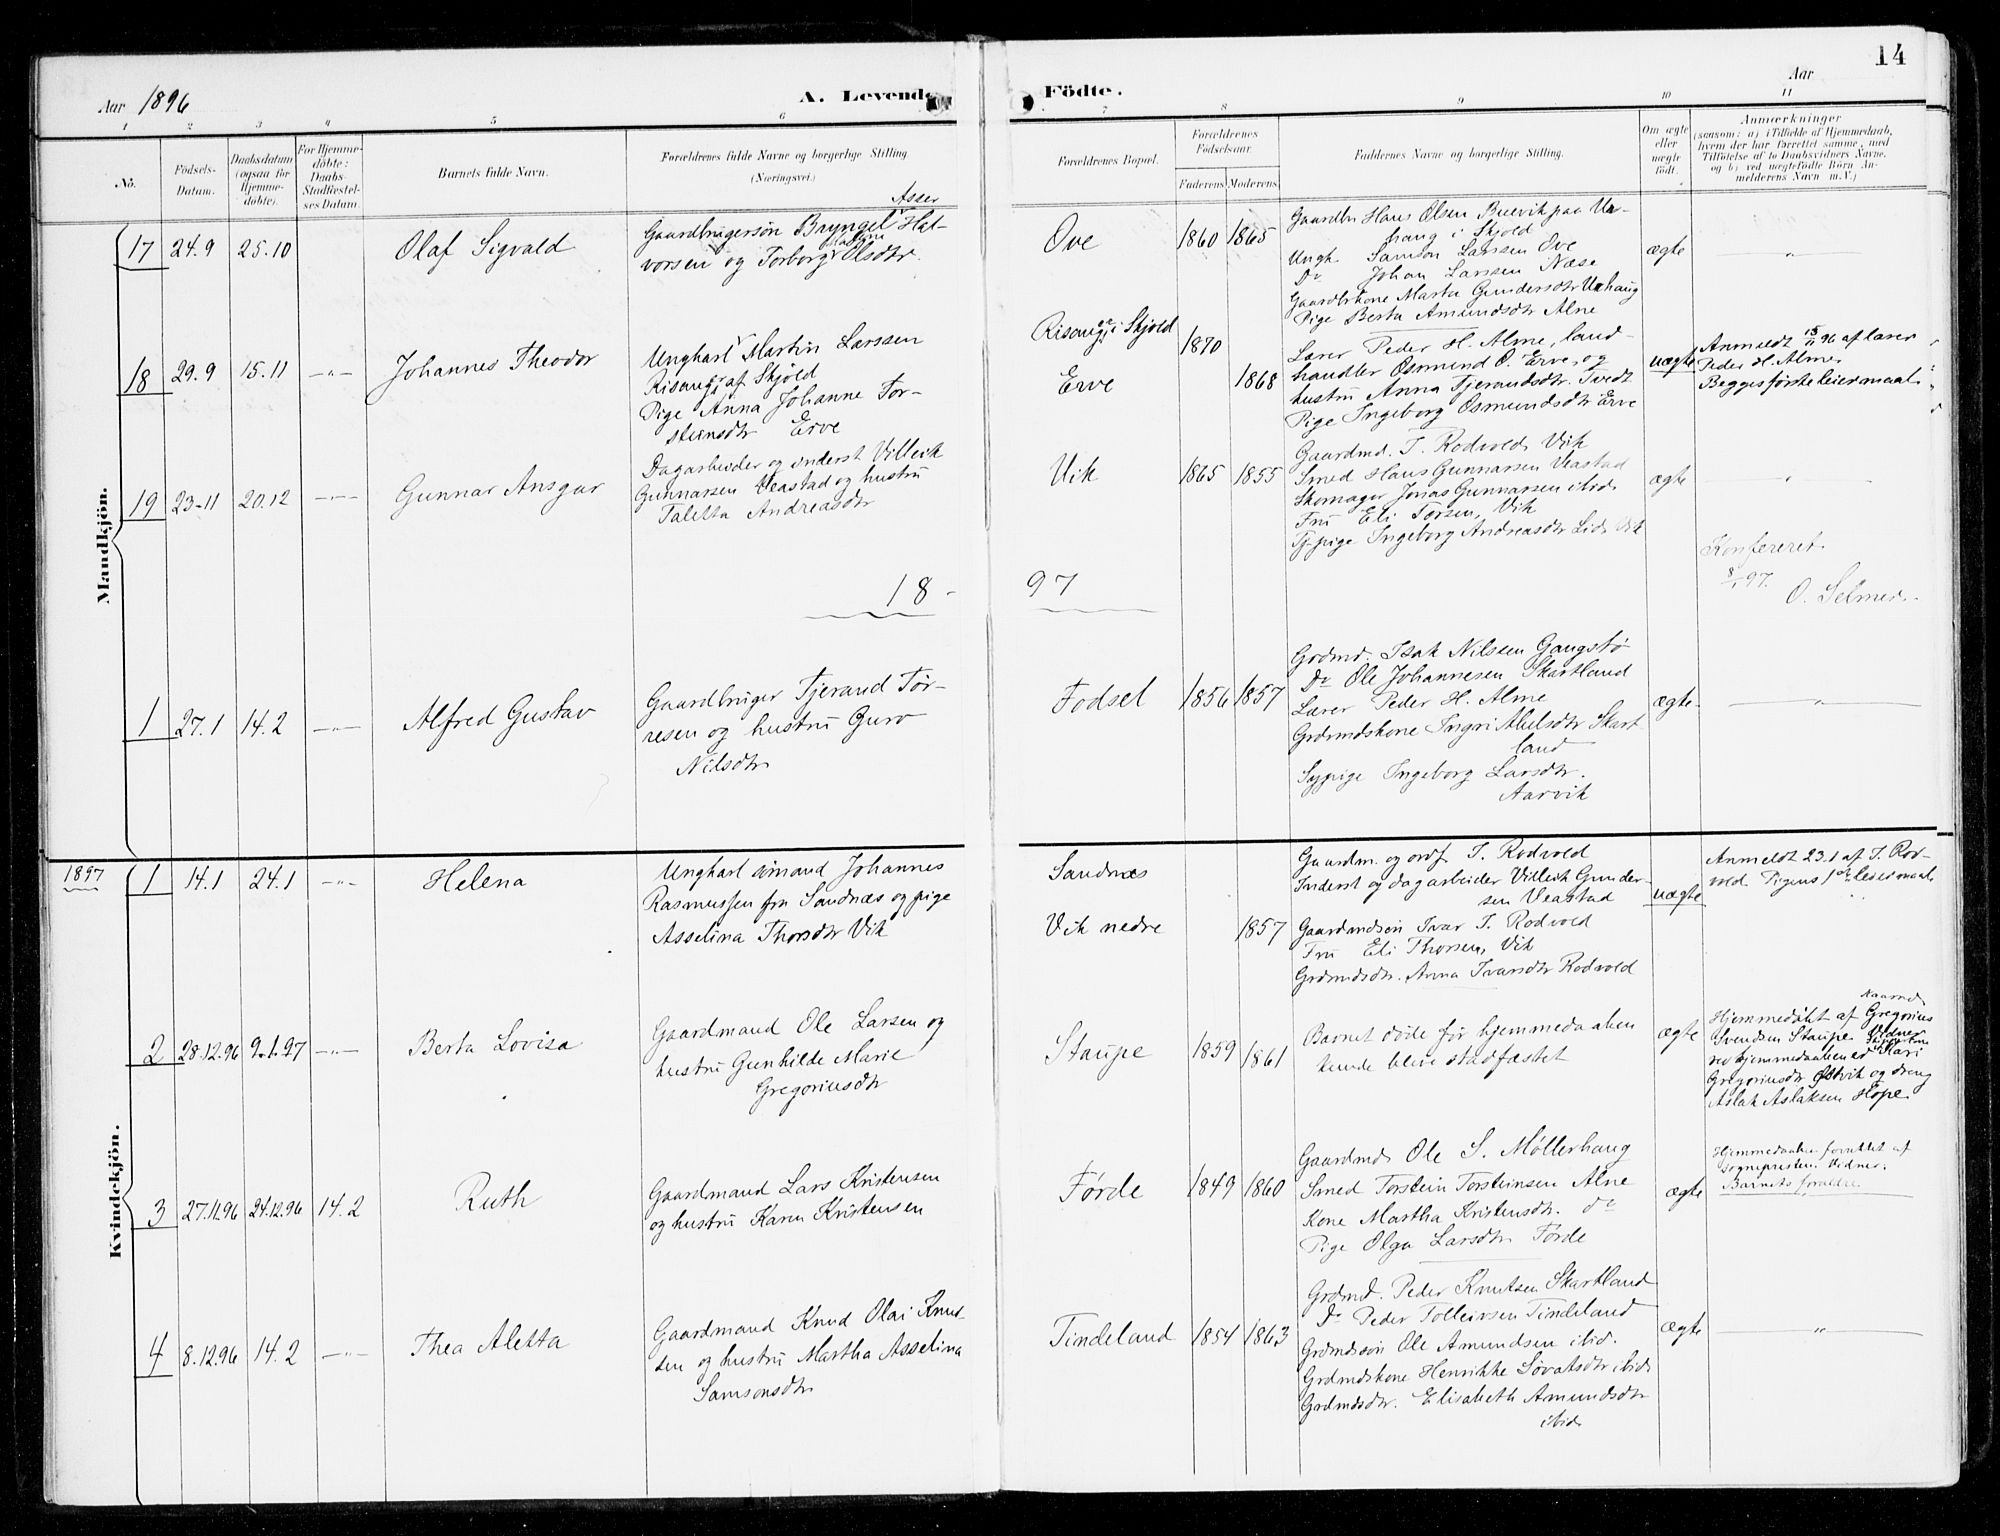 14
Aar 1896
A. Levende
Födte.
Aar
1 2 3 4 5 6 7 8 9 10 11
Nô.
Födsels-
Datum.
Daabsdatum
(ogsaa for
Hjemme-
döbte).
For Hjemme-
döbte:
Daabs-
Stadfæstel-
ses Datum.
Barnets fulde Navn.
Forældrenes fulde Navne og borgerlige Stilling
(Næringsvei.)
Forældrenes Bopæl.
Forældrenes
Födselsaar.
Faderens Moderens
Faddernes Navne og borgerlige Stilling.
Om ægte
eller
uægte
födt.
Anmærkninger
(saasom: a) i Tilfælde af Hjemmedaab,
hvem der har forrettet samme, med
Tilföielse af to Daabsvidners Navne.
og b) ved uægtefödte Börn An-
melderens Navn m. V.)
Mandkjön.
17 24.9 25.10
Olaf Sigvald
Asser
Gaardbrugersön Bryngel Hal-
vorsen og Torborg Olsdtr.
Ove
1860 1865
Gaardbr Hans Olsen Buevik paa
haug i Skjold
Ungk Samson Larssen Ove
Do Johan Larssen Næse
Gaardbrkone Marta Gundersdtr
Pige Berta Amundsdtr Alne
ægte
"
18 29.9 15.11 "
Johannes Theodor
Ungkarl Martin Larssen
af Skjold
Pige Anna Johanne Tor-
steinsdtr Erve
i Skjold
Erve
1870
1868
Lærer Peder H. Alme, land-
handler Osmund O. Erve, og
hustru Anna Tjerandsdtr. Tvedt
Pige Ingeborg Osmundsdtr Erve
uægte
Anmeldt 15/11 96 af lærer
Peder H. Alme
Begges förste leiermaal
19 23-11 20.12 "
Gunnar Ansgar
Dagarbeider og inderst Villeik
Gunnarsen Veastad og hustru
Taletta Andreasdtr
Vik
1865 1855
Gaardmd. T. Rodvold Vik
Smed Hans Gunnarsen Veastad
Skomager Jonas Gunnarsen ibid.
Fru Eli Torsen, Vik
Tj.pige Ingeborg Andreasdtr Lid, Vik
ægte
"
Konfereret.
8/1 97.
O. Selmer.
18-
97
1 27.1 14.2 "
Alfred Gustav
Gaardbruger Tjerand Tor-
resen og hustru Guro
Nilsdtr
Fodsel
1856 1857
Grdmd. Isak Nilssen Gangstø
Do Ole Johannesen Skartland
Lærer Peder H. Alme
Grdmdskone Ingri Abelsdtr Skart-
land
Sypige Ingeborg Larsdtr.
Aarvik
ægte
"
1897
Kvindekjön.
1 14.1 24.1 "
Helena
Ungkarl sömand Johannes
Rasmussen fra Sandnæs og pige
Asselina Thorsdtr Vik
Sandnæs
Vik nedre
1857
Gaardm. og ordf. T. Rodvold
Inderst og dagarbeider Villeik Gunder-
sen Veastad
Gaardmdsön Ivar T. Rodvold
Fru Eli Thorsen, Vik
Grdmdsdtr. Anna Ivarsdtr Rodvold
uægte
Anmeldt 23.1 af T. Rod-
vold. Pigens 1ste leiermaal
2 28.12.96 9.1.97 "
Berta Lovisa
Gaardmand Ole Larsen og
hustru Gunhilde Marie
Gregoriusdtr
Staupe
1859 1861
Barnet døde før hjemmedaaben
kunde blive stadfæstet
ægte
Hjemmedöbt af Gregorius
Svendsen Staupe. Vidner
ved hjemmedaaben er Kari
Gregoriusdtr Østvik og dreng
Aslak Aslaksen Hope
3 27.11.96 24.12.96 14.2
Ruth
Gaardmand Lars Kristensen
og hustru Karen Kristensen
Førde
1849 1860
Gaardmd Ole S. Møllerhaug
Smed Torstein Torsteinsen Alne
Kone Martha Kristensdtr. do
Pige Olga Larsdtr Førde
ægte
Hjemmedaaben forrettet af
sognepresten. Vidner:
Barnets forældre
4 8.12.96 14.2 "
Thea Aletta
Gaardmand Knud Olai Knud-
sen og hustru Martha Asselina
Samsonsdtr
Tindeland
1854 1863
Grdmd. Peder Knutsen Skartland
Do Peder Tolleivsen Tindeland
Grdmdssön Ole Amundsen ibid.
Grdmdskone Henrikke Sjovatsdtr ibid
Grdmdsdtr. Elisabeth Amundsdtr
ibid
ægte
"